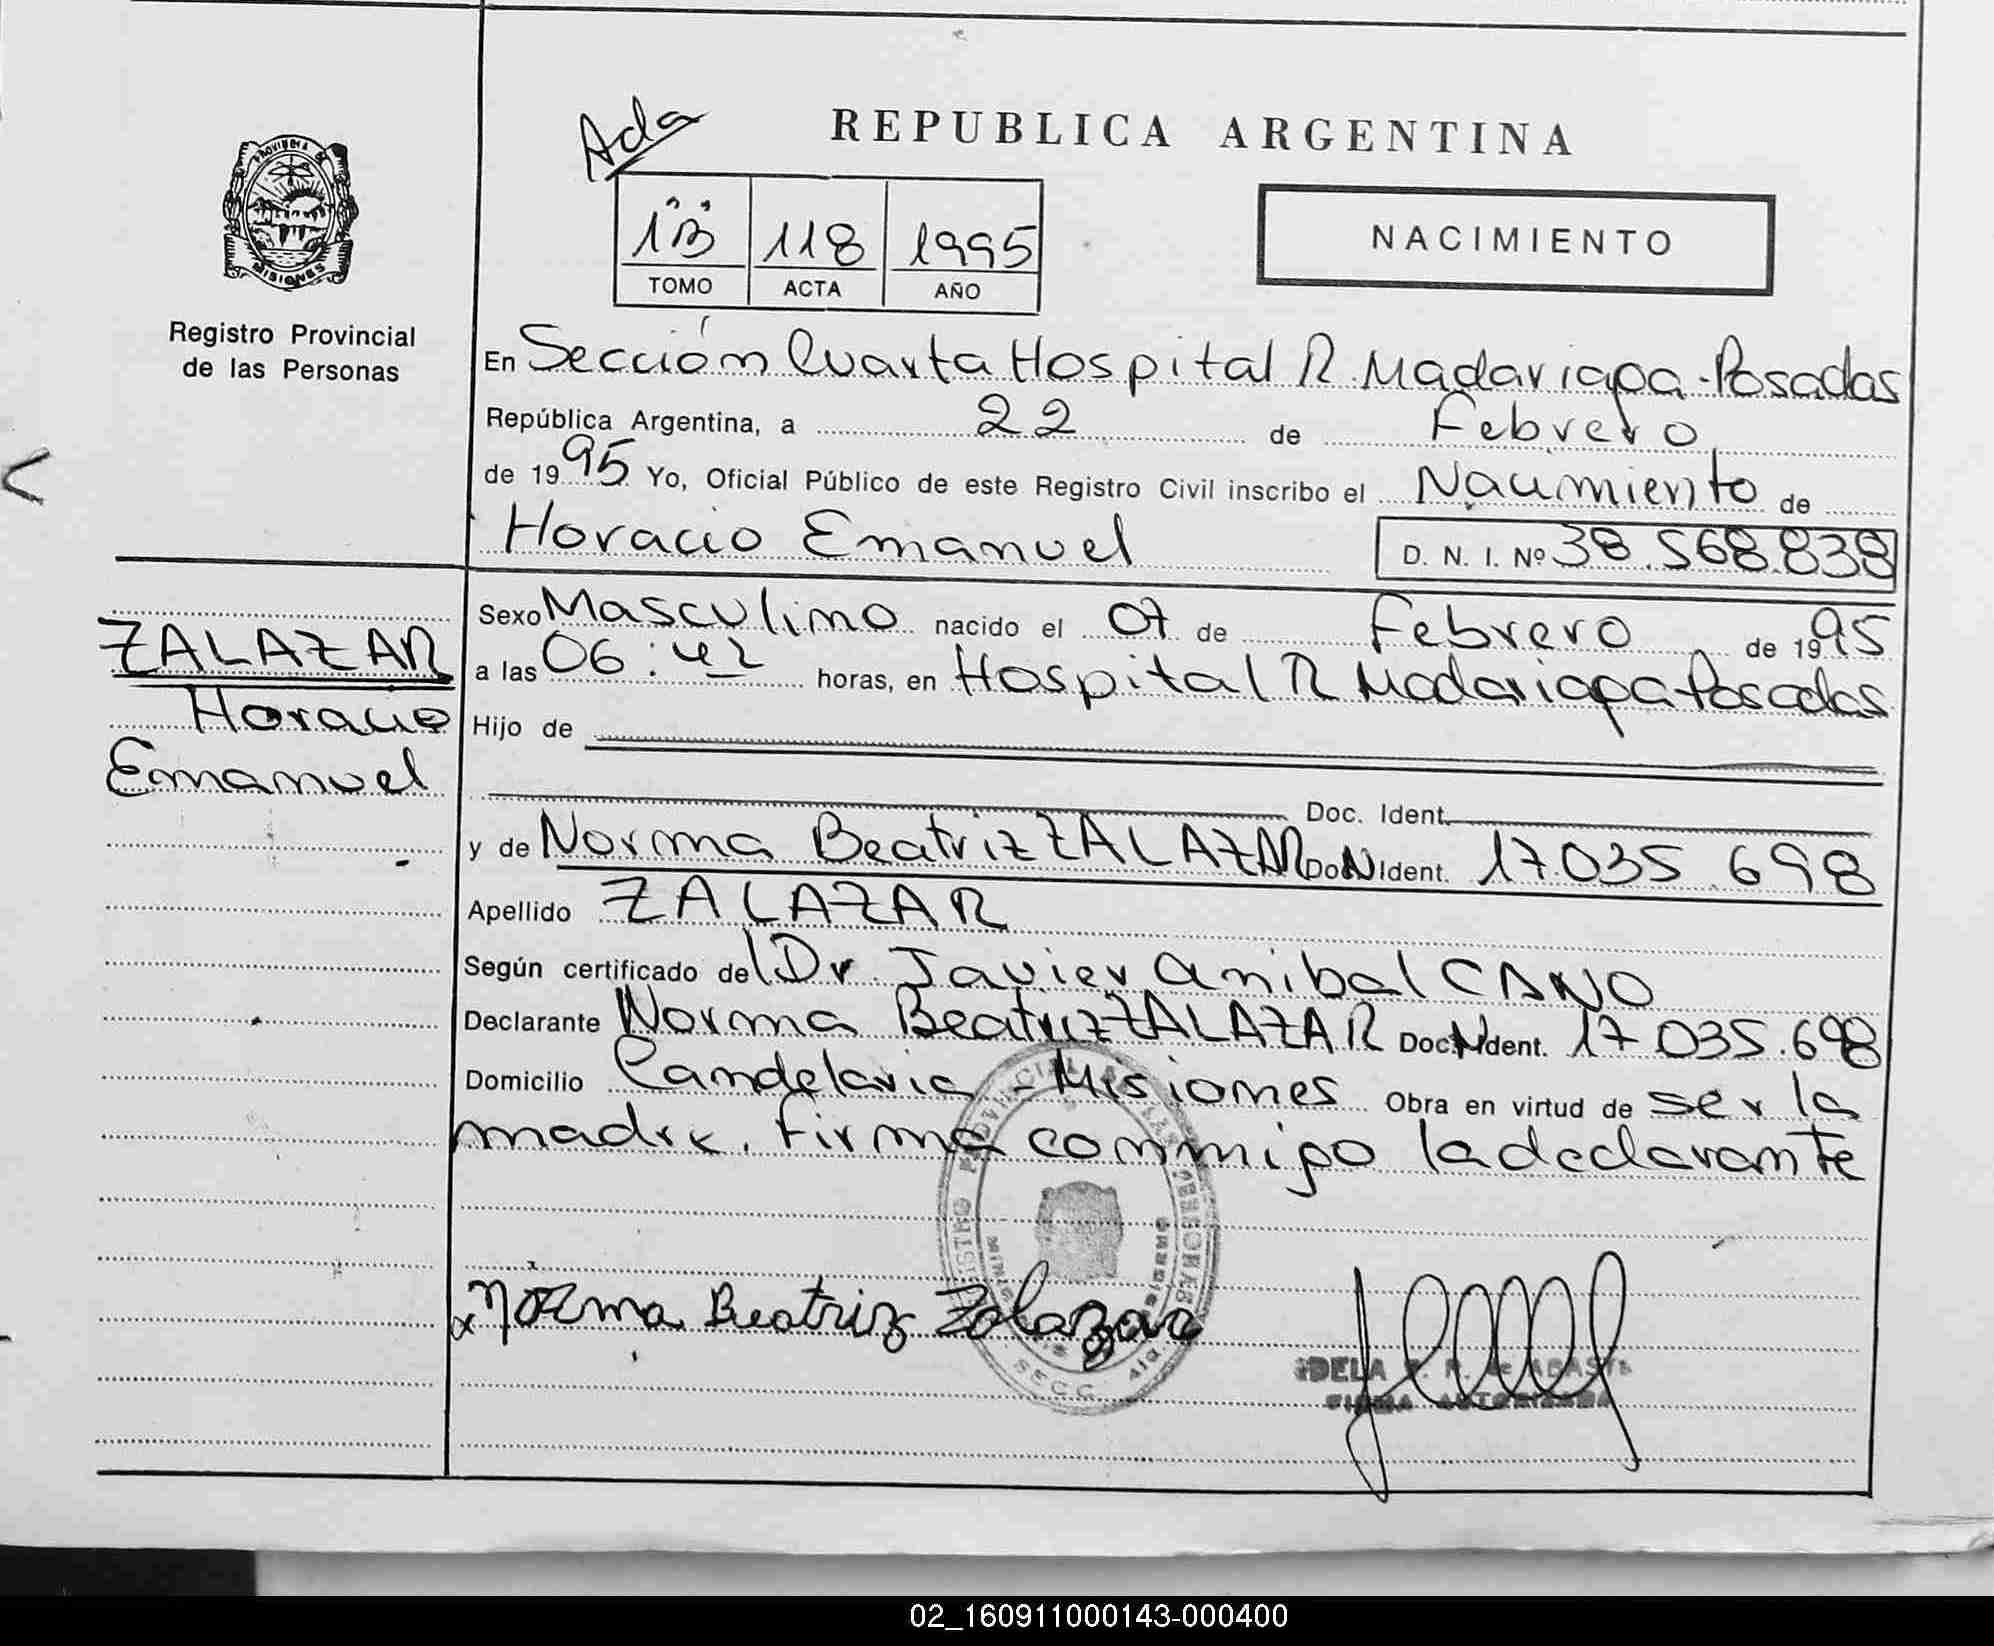 REPUBLICA ARGENTINA
Ada
1"B" 118 1995
TOMO ACTA AÑO
NACIMIENTO
PROVINCIA DE MISIONES
Registro Provincial
de las Personas
En Sección Cuarta Hospital R. Madariaga - Posadas
República Argentina, a 22 de Febrero
de 1995 Yo, Oficial Público de este Registro Civil inscribo el Nacimiento de
Horacio Emanuel D. N. I. Nº 38.568.838
Sexo Masculino nacido el 07 de Febrero de 1995
a las 06:42 horas, en Hospital R Madariaga Posadas
Hijo de
Doc. Ident.
y de Norma Beatriz ZALAZAR Doc. Ident. 17.035.698
Apellido ZALAZAR
Según certificado del Dr. Javier Anibal CANO
Declarante Norma Beatriz ZALAZAR Doc. Ident. 17.035.698
Domicilio Candelaria - Misiones Obra en virtud de ser la
madre. Firma conmigo la declarante
ZALAZAR
Horacio
Emanuel
Norma Beatriz Zalazar
FIRMA AUTORIZADA
02_160911000143-000400